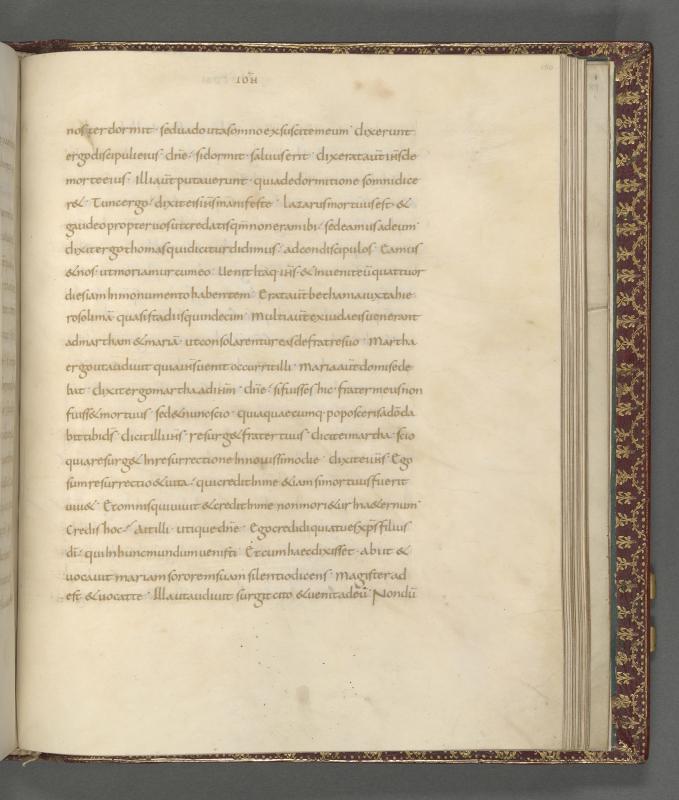 IOH̄
noster dormit · sed vado ut a somno exsuscitem eum · dixerunt
ergo discipuli eius · dn̄e · si dormit · salvus erit · dixerat aut̄ ih̄s de
morte eius · Illi aut̄ putaverunt · quia de dormitione somni dice
ret · Tunc ergo · dixit eis ih̄s manifeste · Lazarus mortuus est · &
gaudeo propter vos ut credatis qm̄ non eram ibi · sed eamus ad eum ·
dixit ergo thomas qui dicitur didimus · ad condiscipulos · Eamus
& nos · ut moriamur cum eo · Venit itaq· ih̄s · & invenit eū quattuor
dies iam in monumento habentem · Erat aut̄ bethania iuxta hie
rosolimā · quasi stadiis quindecim · Multi aut̄ ex iudaeis venerant
ad martham & mariā · ut consolarentur eas de fratre suo · Martha
ergo ut audivit quia ih̄s venit occurrit illi · Maria aut̄ domi sede
bat · dixit ergo martha ad ih̄m · dn̄e · si fuisses hic · frater meus non
fuiss& mortuus · sed & nunc scio · quia quaecumq· poposceris a dō da
bit tibi d̄s · dicit illi ih̄s · resurg& frater tuus · dicit ei martha · scio
quia resurg& in resurrectione in novissimo die · dixit ei ih̄s · Ego
sum resurrectio & vita · qui credit in me & iam si mortuus fuerit
viv& · Et omnis qui vivit & credit in me non mori&ur in a&ernum ·
Credis hoc · Ait illi · utique dn̄e · Ego credidi quia tu es xp̄s filius
dī · qui in hunc mundum venisti · Et cum haec dixisset · abiit &
vocavit mariam sororem suam silentio dicens · Magister ad
est & vocat te · Illa ut audivit surgit cito & venit ad eū · Nondū